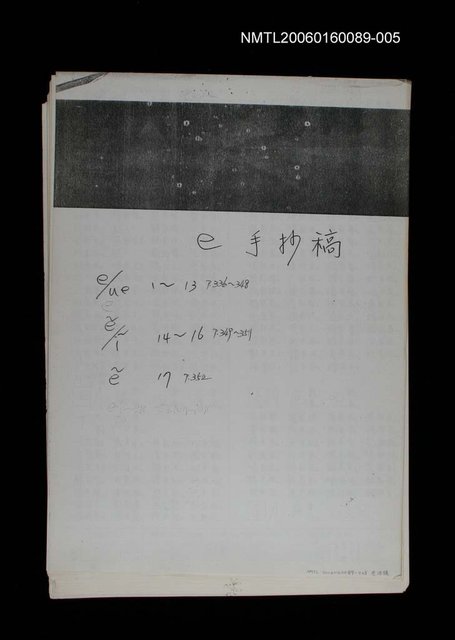 NMTL20060160089-005
e 手抄稿
e/ue 1～13 P.336～348
ẽ/ĩ 14～16 P.349～351
ẽ 17 P.352